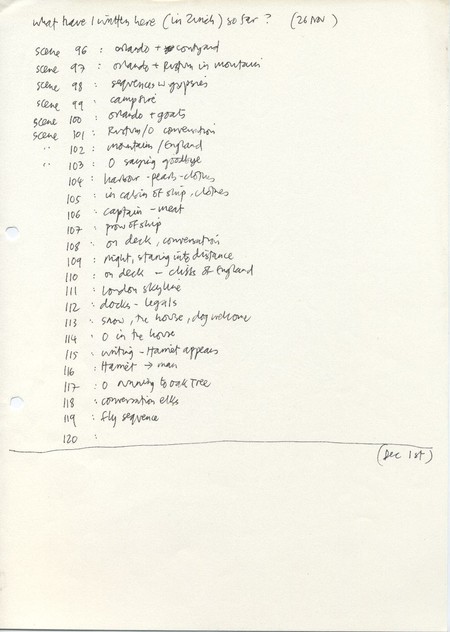 what have I written here (in Zurich) so far? (26 Nov)
scene 96 : orlando + courtyard
scene 97 : orlando + Rustum in mountain
scene 98 : sequences w gypsies
scene 99 : campfire
scene 100 : orlando + goats
scene 101 : Rustum/O conversation
" 102 : mountains/England
" 103 : O saying goodbye
104 : harbour - pearls - clothes
105 : in cabin of ship, clothes
106 : captain - meat
107 : prow of ship
108 : on deck, conversation
109 : night, staring into distance
110 : on deck - cliffs of England
111 : London skyline
112 : docks - legals
113 : snow, the house, dog welcome
114 : O in the house
115 : writing - Harriet appears
116 : Harriet → man
117 : O running to oak tree
118 : conversation elks
119 : fly sequence
120 :
(Dec 1st)